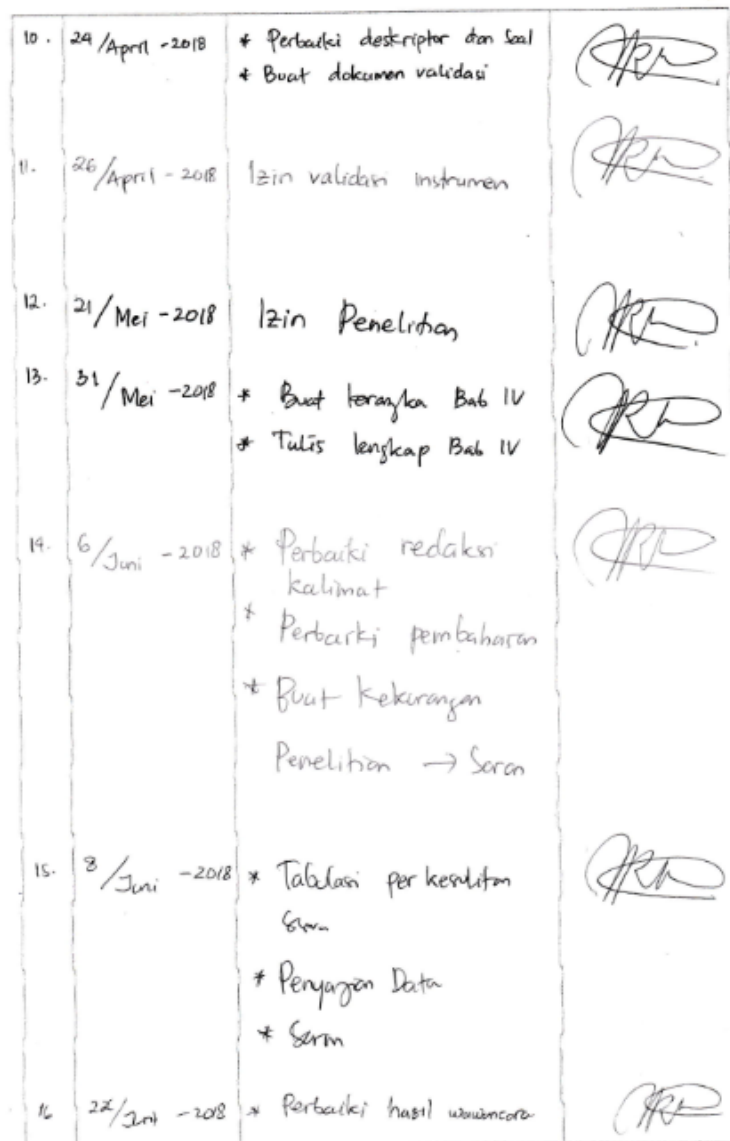 10. 24/April-2018 * Perbaiki deskriptor dan Soal
* Buat dokumen validasi
11. 26/April-2018 Izin validasi instrumen
12. 21/Mei-2018 Izin Penelitian
13. 31/Mei-2018 * Buat kerangka Bab IV
* Tulis lengkap Bab IV
14. 6/Juni-2018 * Perbaiki redaksi
kalimat
* Perbaiki pembahasan
* Buat Kekurangan
Penelitian → Saran
15. 8/Juni-2018 * Tabulasi per kesulitan
* Penyajian Data
* Saran
16 22/Juni-2018 * Perbaiki hasil wawancara